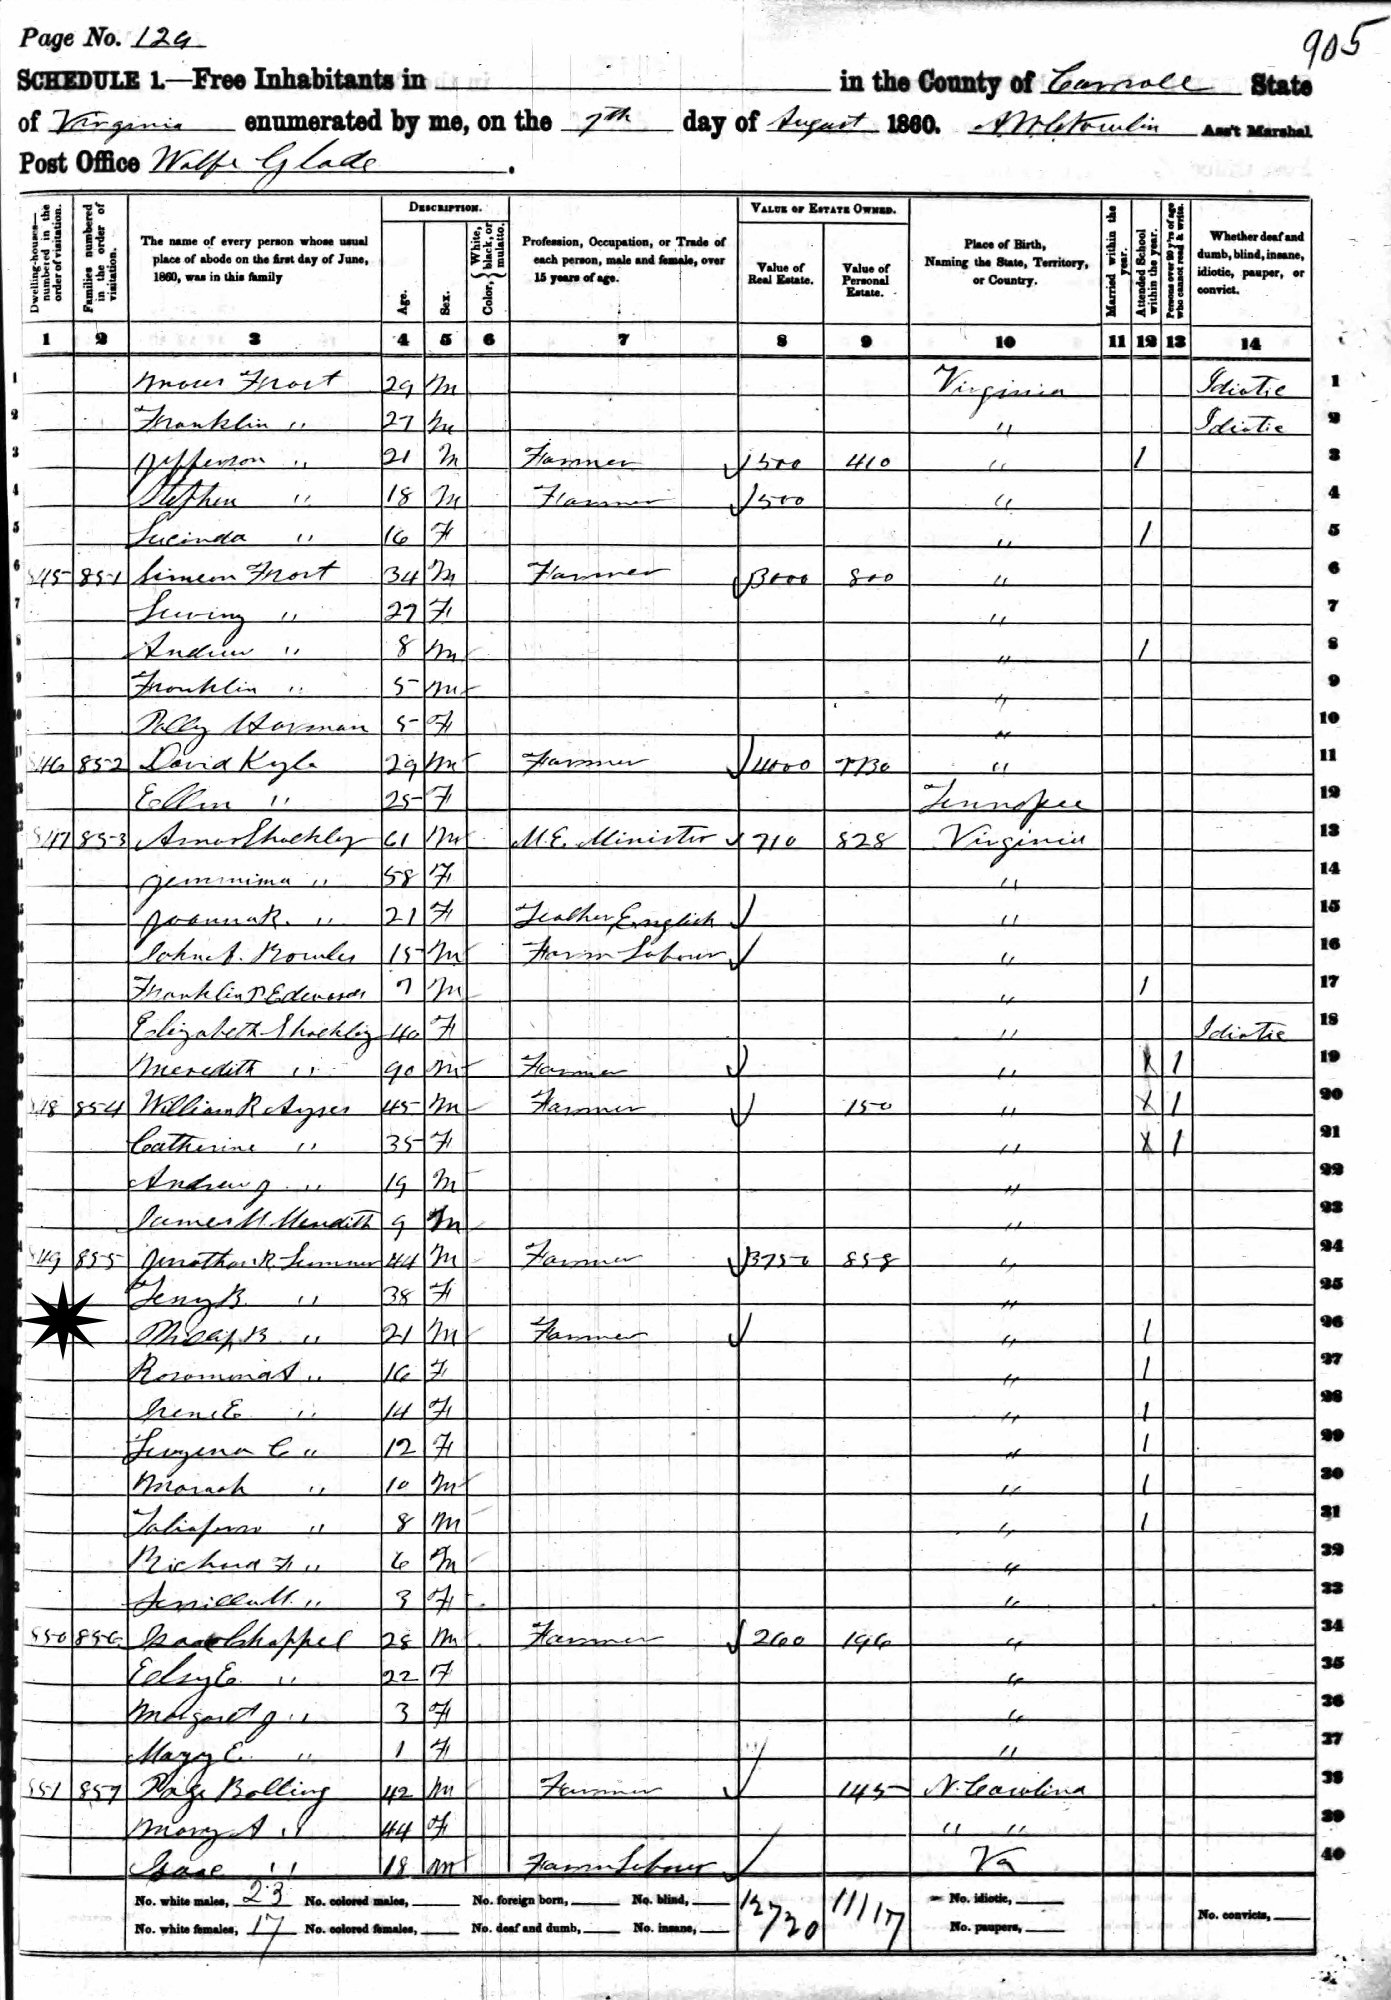 Page No. 129
905
SCHEDULE 1.—Free Inhabitants in in the County of Carroll State
of Virginia enumerated by me, on the 7th day of August 1860. Ass't Marshal
Post Office Wolfe Glade.
Dwelling-houses—numbered in the order of visitation.
Families numbered in the order of visitation.
The name of every person whose usual place of abode on the first day of June, 1860, was in this family
DESCRIPTION.
Age.
Sex.
Color, { White, black, or mulatto.
Profession, Occupation, or Trade of each person, male and female, over 15 years of age.
VALUE OF ESTATE OWNED.
Value of Real Estate.
Value of Personal Estate.
Place of Birth, Naming the State, Territory, or Country.
Married within the year.
Attended School within the year.
Persons over 20 y'rs of age who cannot read & write.
Whether deaf and dumb, blind, insane, idiotic, pauper, or convict.
1 2 3 4 5 6 7 8 9 10 11 12 13 14
1 Moses Frost 29 M Virginia Idiotic 1
2 Franklin " 27 M " Idiotic 2
3 Jefferson " 21 M Farmer 500 410 " 1 3
4 Stephen " 18 M Farmer 500 " 4
5 Lucinda " 16 F " 1 5
6 845 851 Simeon Frost 34 M Farmer 3000 800 " 6
7 " 27 F " 7
8 Andrew " 8 M " 1 8
9 Franklin " 5 M " 9
10 Polly Harman 5 F " 10
11 846 852 David Kyle 29 M Farmer 4000 7730 " 11
12 Ellen " 25 F Tennessee 12
13 847 853 Amos Shockley 61 M M.E. Minister 710 828 Virginia 13
14 Jemmima " 58 F " 14
15 Joanna R. " 21 F Teacher English " 15
16 John A. Bowles 15 M Farm Labour " 16
17 Franklin P Edwards 7 M " 1 17
18 Elizabeth Shockley 40 F " Idiotic 18
19 Meredith " 90 M Farmer " X 1 19
20 848 854 William R Ayres 45 M Farmer 150 " X 1 20
21 Catherine " 35 F " X 1 21
22 Andrew J. " 19 M " 22
23 James M Meredith 9 M " 23
24 849 855 Jonathan R. Sumner 44 M Farmer 3750 858 " 24
25 B. " 38 F " 25
26 Philip B " 21 M Farmer " 1 26
27 Rosamond A " 16 F " 1 27
28 Irene E " 14 F " 1 28
29 C " 12 F " 1 29
30 " 10 M " 1 30
31 Taliaferro " 8 M " 1 31
32 Richard F " 6 M " 32
33 M. " 3 F " 33
34 850 856 Isaac Chappel 28 M Farmer 260 196 " 34
35 Elsy E. " 22 F " 35
36 Margaret J " 3 F " 36
37 Mary E. " 1 F " 37
38 851 857 Page Bolling 42 M Farmer 145 N. Carolina 38
39 Mary A " 44 F " " 39
40 Isaac " 18 M Farm Labour Va 40
No. white males, 23 No. colored males, No. foreign born, No. blind, 12720 11117 No. idiotic,
No. white females, 17 No. colored females, No. deaf and dumb, No. insane, No. paupers, No. convicts,